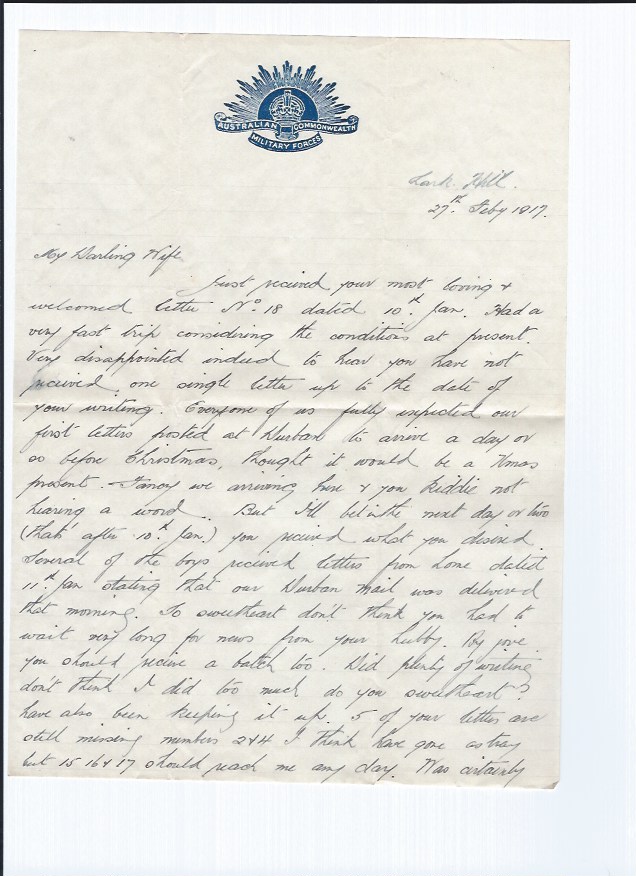 AUSTRALIAN COMMONWEALTH
MILITARY FORCES
Lark Hill.
27th Feby 1917.
My Darling Wife
Just recieved your most loving &
welcomed letter No. 18 dated 10th Jan. Had a
very fast trip considering the conditions at present.
Very disappointed indeed to hear you have not
recieved one single letter up to the date of
your writing. Everyone of us fully expected our
first letters posted at Durban to arrive a day or
so before Christmas, thought it would be a Xmas
present. Fancy we arriving here & you Kiddie not
hearing a word. But I'll bet in the next day or two
(that's after 10th Jan.) you recieved what you desired
Several of the boys recieved letters from home dated
11th Jan stating that our Durban mail was delivered
that morning. So sweetheart don't think you had to
wait very long for news from your hubby. By jove
you should recieve a batch too. Did plenty of writing
don't think I did too much do you sweetheart?
have also been keeping it up. 5 of your letters are
still missing numbers 2 & 4 I think have gone astray
but 15 16 & 17 should reach me any day. Was certainly